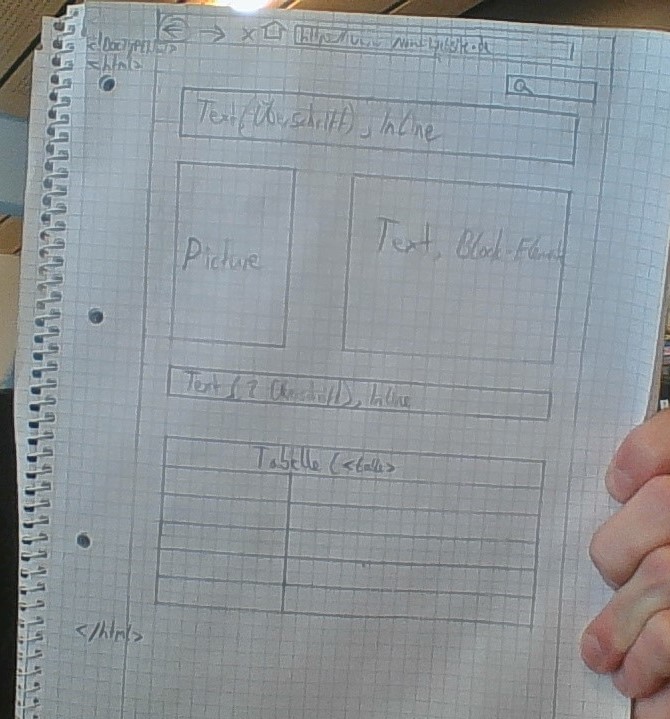 <!Doctype html>
<html>
Text (Überschrift), Inline
Picture
Text, Block-Element
Text (2 Überschrift), Inline
Tabelle (<table>
</html>